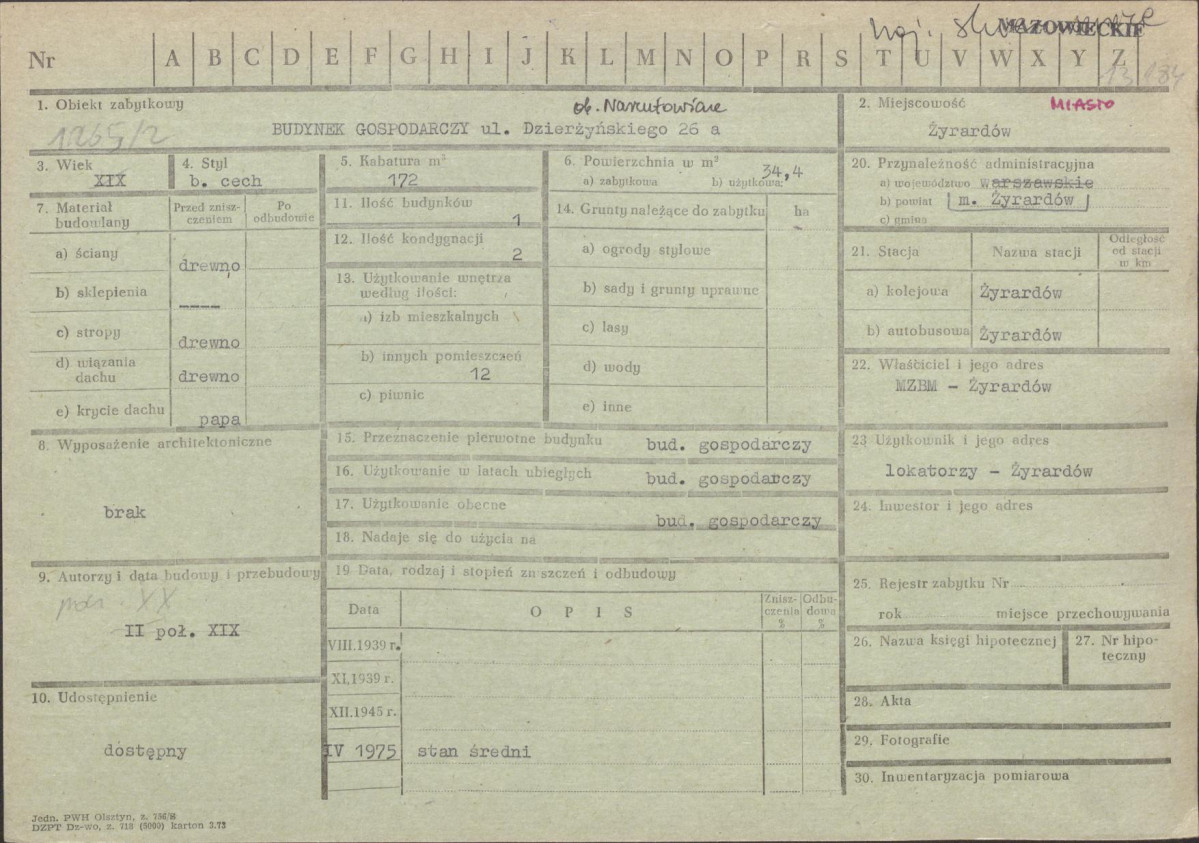 woj. MAZOWIECKIE
Nr A B C D E F G H I J K L M N O P R S T U V W X Y Z
1. Obiekt zabytkowy
ob. Narutowicza
1265/2
BUDYNEK GOSPODARCZY ul. Dzierżyńskiego 26 a
2. Miejscowość MIASTO
Żyrardów
3. Wiek
XIX
4. Styl
b. cech
5. Kabatura m³
172
6. Powierzchnia w m²
34,4
a) zabytkowa b) użytkowa:
20. Przynależność administracyjna
a) województwo warszawskie
b) powiat m. Żyrardów
c) gmina
7. Materiał budowlany
Przed znisz-
czeniem
Po
odbudowie
a) ściany drewno
b) sklepienia ----
c) stropy drewno
d) wiązania
dachu drewno
e) krycie dachu papa
11. Ilość budynków
1
12. Ilość kondygnacji
2
13. Użytkowanie wnętrza
według ilości:
a) izb mieszkalnych \
b) innych pomieszczeń
12
c) piwnic
14. Grunty należące do zabytku ha
a) ogrody stylowe
b) sady i grunty uprawne
c) lasy
d) wody
e) inne
21. Stacja Nazwa stacji Odległość
od stacji
w km
a) kolejowa Żyrardów
b) autobusowa Żyrardów
22. Właściciel i jego adres
MZBM - Żyrardów
8. Wyposażenie architektoniczne
brak
15. Przeznaczenie pierwotne budynku bud. gospodarczy
16. Użytkowanie w latach ubiegłych bud. gospodarczy
17. Użytkowanie obecne
bud. gospodarczy
18. Nadaje się do użycia na
23 Użytkownik i jego adres
lokatorzy - Żyrardów
24. Inwestor i jego adres
9. Autorzy i data budowy i przebudowy
pocz. XX
II poł. XIX
19 Data, rodzaj i stopień zniszczeń i odbudowy
Data O P I S Znisz-
czenia
% Odbu-
dowa
%
VIII.1939 r.
XI.1939 r.
XII.1945 r.
IV 1975 stan średni
25. Rejestr zabytku Nr
rok miejsce przechowywania
26. Nazwa księgi hipotecznej
27. Nr hipo-
teczny
10. Udostępnienie
dostępny
28. Akta
29. Fotografie
30. Inwentaryzacja pomiarowa
Jedn. PWH Olsztyn, z. 756/B
DZPT Dz-wo, z. 718 (5000) karton 3.73